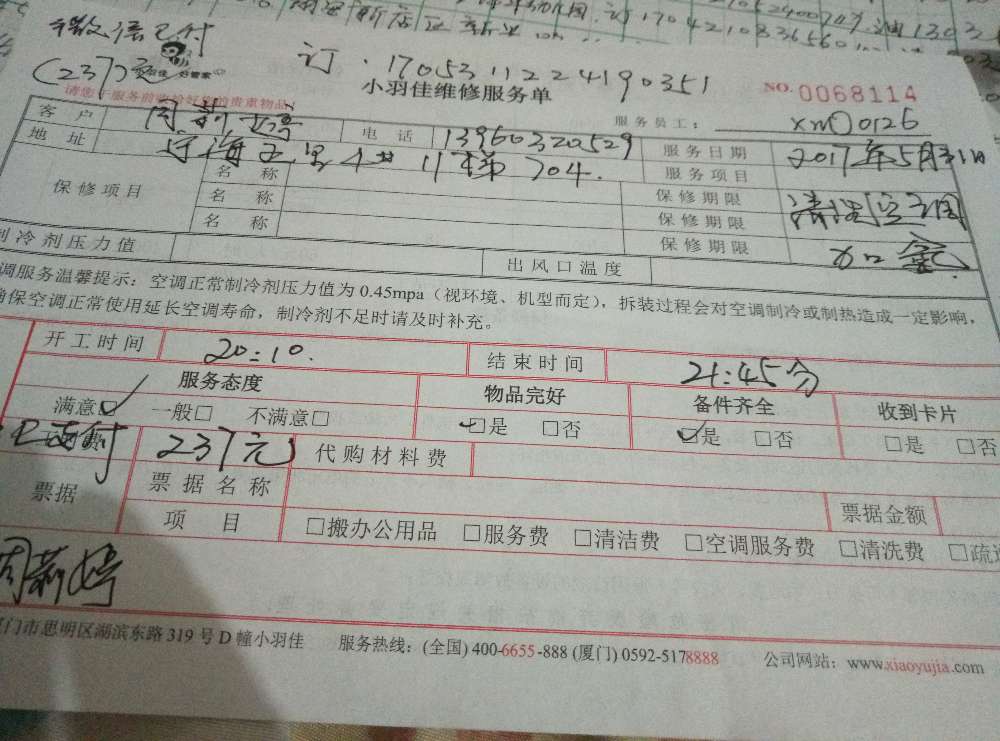 微信已付
(237)元
订.1705311224190351
小羽佳 好管家
请您于服务前收好您的贵重物品!
小羽佳维修服务单
NO.0068114
服务员工: xm00126
客户 周莉婷 电话 13960320529 服务日期 2017年5月31日
地址 4# 11梯 704. 服务项目 清洗空调
保修项目 名称 保修期限
名称 保修期限
名称 保修期限
制冷剂压力值 出风口温度
调服务温馨提示:空调正常制冷剂压力值为0.45mpa(视环境、机型而定),拆装过程会对空调制冷或制热造成一定影响,
确保空调正常使用延长空调寿命,制冷剂不足时请及时补充。
开工时间 20:10. 结束时间 21:45分
服务态度 物品完好 备件齐全 收到卡片
满意☑ 一般□ 不满意□ ☑是 □否 ☑是 □否 □是 □否
已支付 237元 代购材料费
票据 票据名称 票据金额
项目 □搬办公用品 □服务费 □清洁费 □空调服务费 □清洗费 □疏通
周莉婷
厦门市思明区湖滨东路319号D幢小羽佳 服务热线:(全国)400-6655-888(厦门)0592-5178888 公司网站:www.xiaoyujia.com